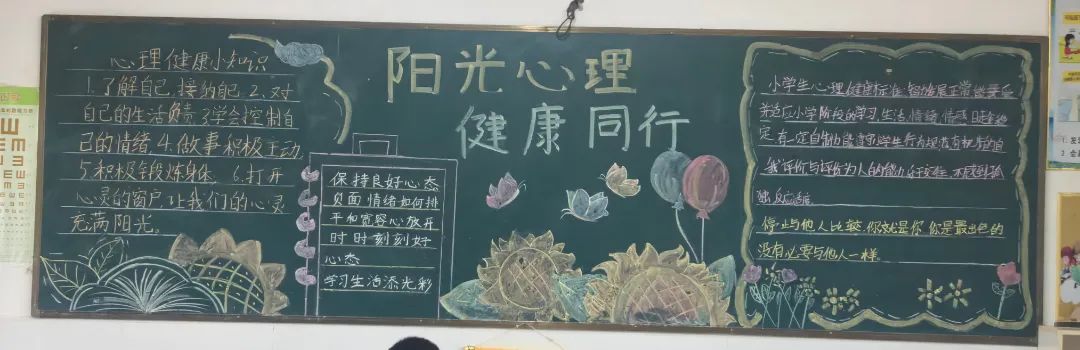 心理健康小知识
1.了解自己,接纳自己 2.对
自己的生活负责 3学会控制自
己的情绪 4.做事积极主动
5积极锻炼身体 6.打开
心灵的窗户,让我们的心灵
充满阳光。
阳光心理
健康同行
保持良好心态
负面情绪如何排
平和宽容心放开
时时刻刻好
心态
学习生活添光彩
小学生心理健康标准:智力发展正常能
并适应小学阶段的学习,生活,情绪,情感日趋稳
定,有一定自制力能遵守小学生行为规范有初步的自
我评价与评价为人的能力
停止与他人比较,你就是你,你是最出色的
没有必要与他人一样